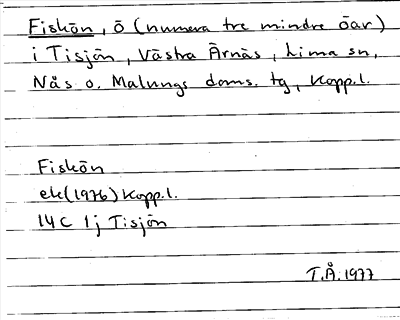 Fiskön, ö (numera tre mindre öar)
i Tisjön, Västra Ärnäs, Lima sn,
Nås o. Malungs doms. tg, Kopp.l.
Fiskön
ek(1976) Kopp.l.
14C 1j Tisjön
T.Å. 1977